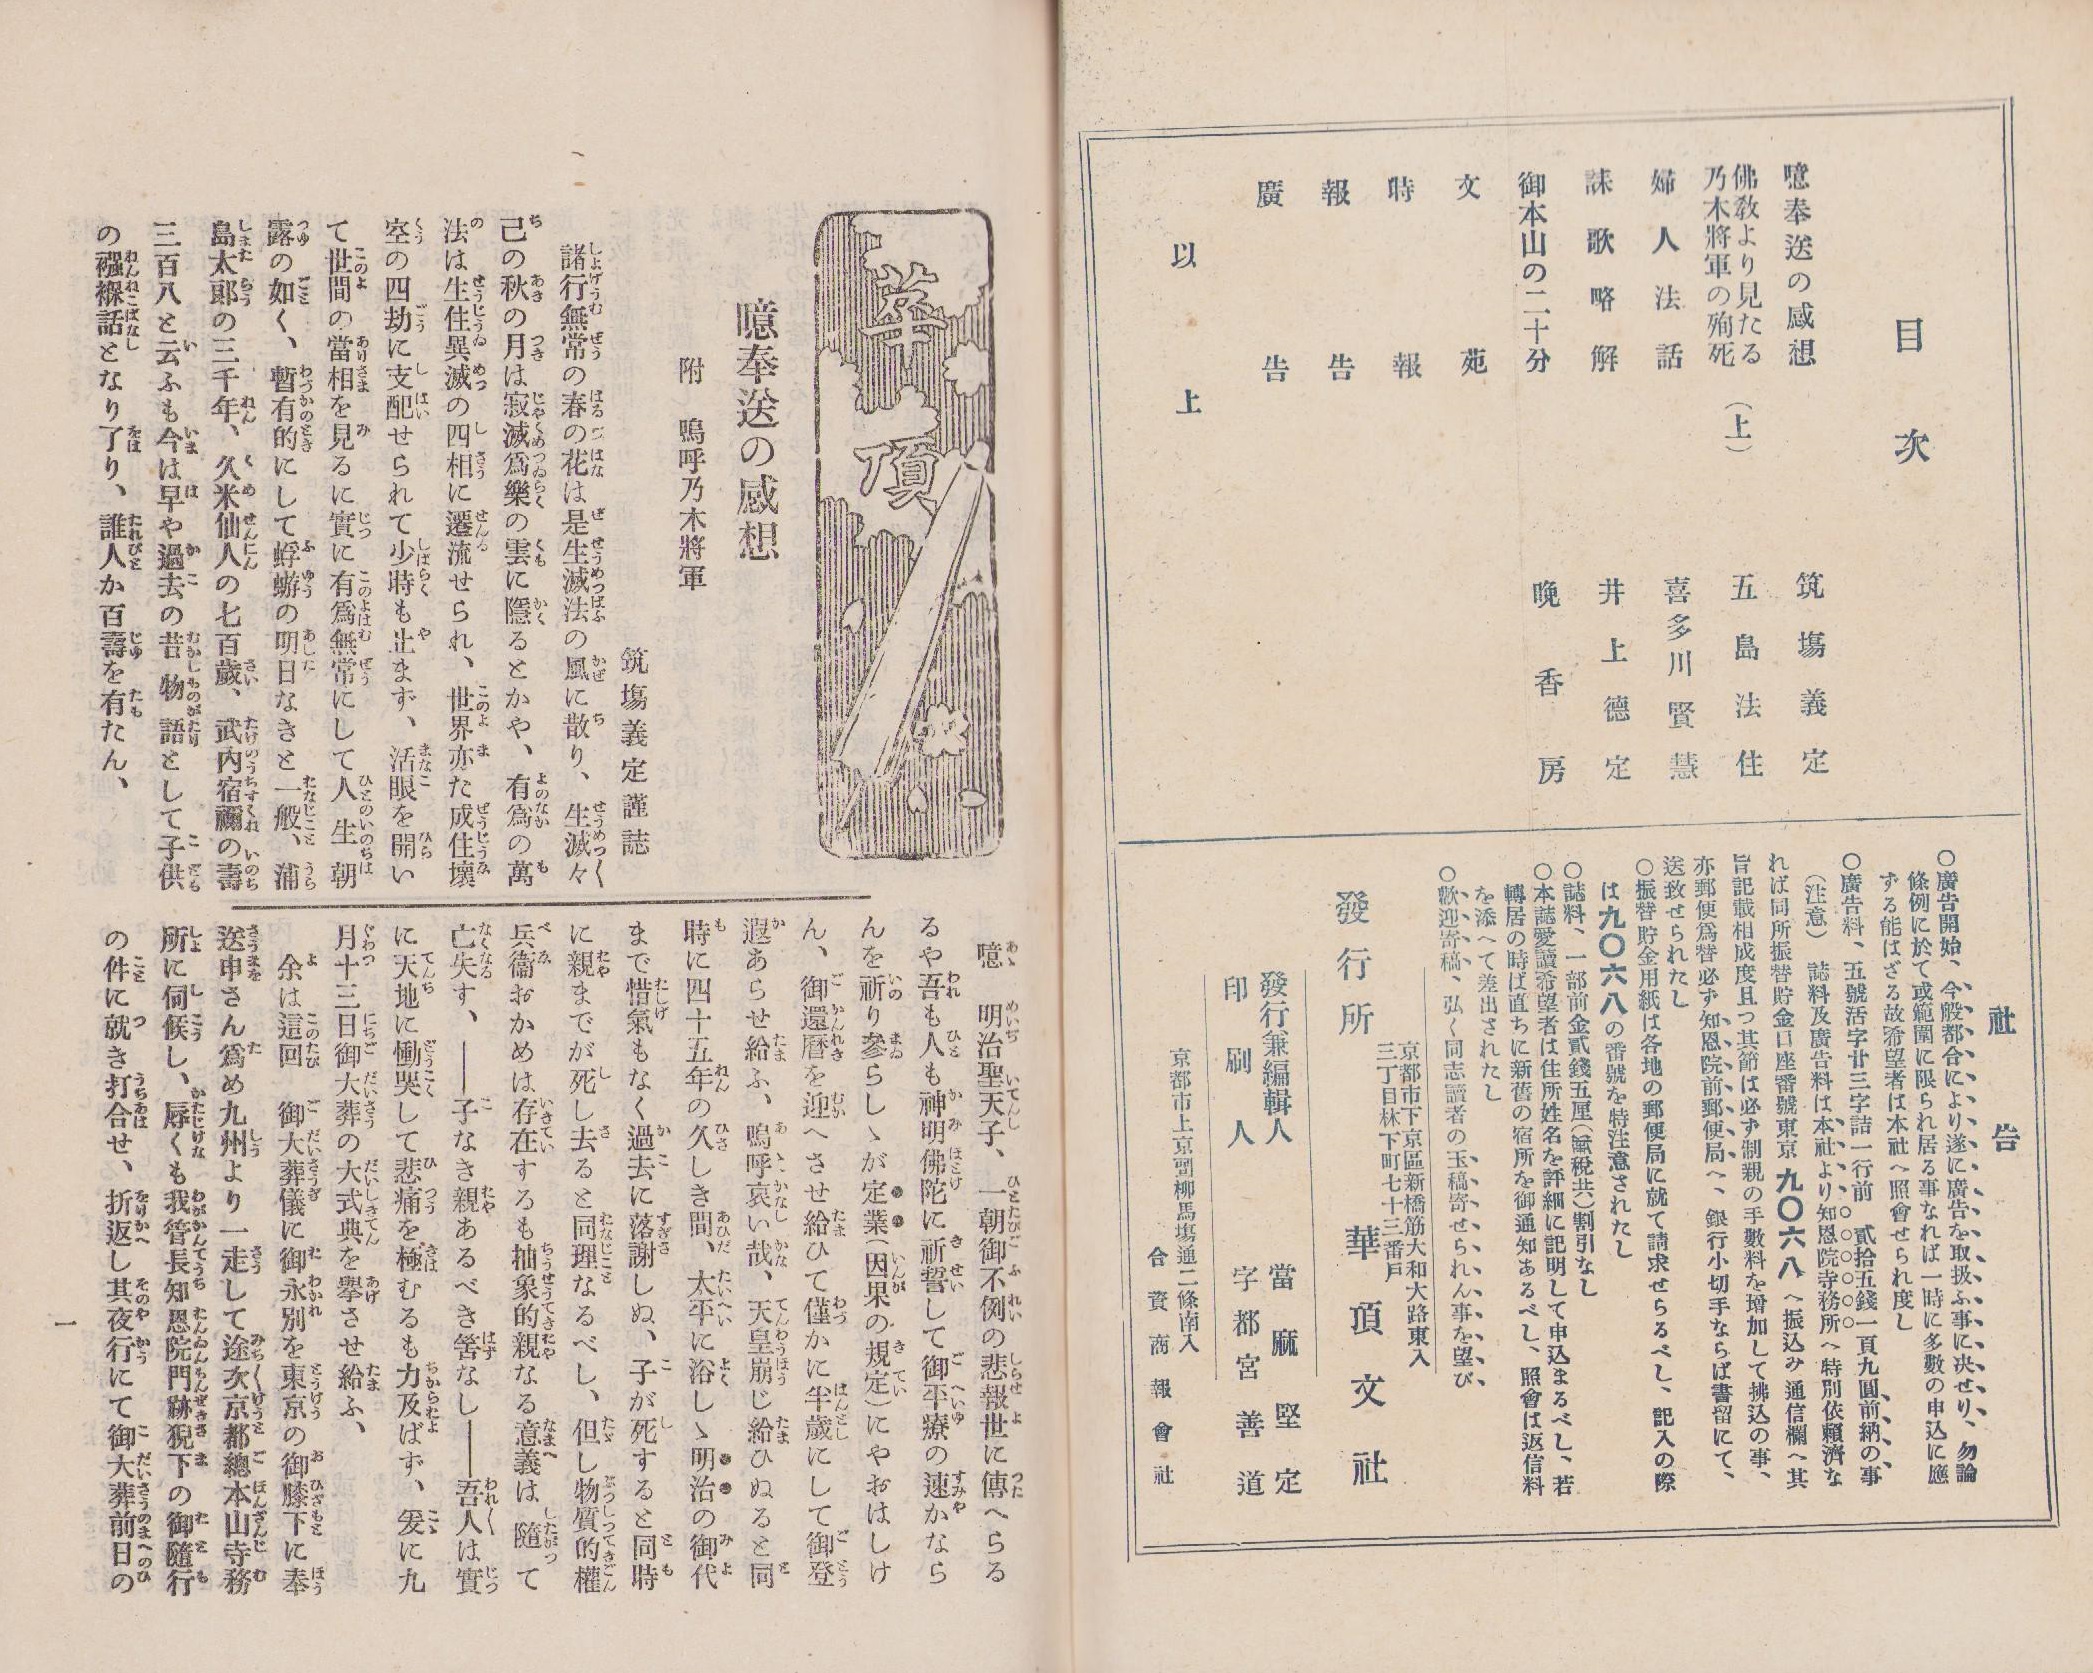 目次
噫奉送の感想 筑塲義定
佛敎より見たる
乃木將軍の殉死（上） 五島法住
婦人法話 喜多川賢慧
誄歌略解 井上德定
御本山の二十分 晩香房
文苑
時報
報告
廣告
以上
社告
○廣告開始、今般都合により遂に廣告を取扱ふ事に决せり、勿論
條例に於て或範圍に限られ居る事なれば一時に多數の申込に應
ずる能はざる故希望者は本社へ照會せられ度し
○廣告料、五號活字廿三字詰一行前 貳拾五錢一頁九圓前納の事
（注意） 誌料及廣告料は本社より知恩院寺務所へ特別依賴濟な
れば同所振替貯金口座番號東京 九〇六八 へ振込み通信欄へ其
旨記載相成度且つ其節は必ず制親の手數料を增加して拂込の事、
亦郵便爲替必ず知恩院前郵便局へ、銀行小切手ならば書留にて、
送致せられたし
○振替貯金用紙は各地の郵便局に就て請求せらるべし、記入の際
は九〇六八の番號を特注意されたし
○誌料、一部前金貳錢五厘（郵稅共）割引なし
○本誌愛讀希望者は住所姓名を詳細に記明して申込まるべし、若
轉居の時は直ちに新舊の宿所を御通知あるべし、照會は返信料
を添へて差出されたし
○歡迎寄稿、弘く同志讀者の玉稿寄せられん事を望む
京都市下京區新橋筋大和大路東入
三丁目林下町七十三番戶
發行所 華頂文社
發行兼編輯人 當麻堅定
印刷人 宇都宮善道
京都市上京區柳馬塲通二條南入
合資商報會社
華頂
噫奉送の感想
附 嗚呼乃木將軍
筑塲義定謹誌
諸行無常の春の花は是生滅法の風に散り、生滅々
己の秋の月は寂滅爲樂の雲に隱るとかや、有爲の萬
法は生住異滅の四相に遷流せられ、世界亦た成住壞
空の四劫に支配せられて少時も止まず、活眼を開い
て世間の當相を見るに實に有爲無常にして人生朝
露の如く、暫有的にして蜉蝣の明日なきと一般、浦
島太郞の三千年、久米仙人の七百歲、武內宿禰の壽
三百八と云ふも今は早や過去の昔物語として子供
の襁褓話となり了り、誰人か百壽を有たん、
噫 明治聖天子、一朝御不例の悲報世に傳へらる
るや吾も人も神明佛陀に祈誓して御平療の速かなら
んを祈り參らしゝが定業（因果の規定）にやおはしけ
ん、御還曆を迎へさせ給ひて僅かに半歲にして御登
遐あらせ給ふ、嗚呼哀い哉、天皇崩じ給ひぬると同
時に四十五年の久しき間、太平に浴しゝ明治の御代
まで惜氣もなく過去に落謝しぬ、子が死すると同時
に親までが死し去ると同理なるべし、但し物質的權
兵衞おかめは存在するも抽象的親なる意義は隨って
亡失す、――子なき親あるべき筈なし――吾人は實
に天地に慟哭して悲痛を極むるも力及ばず、爰に九
月十三日御大葬の大式典を擧させ給ふ、
余は這回 御大葬儀に御永別を東京の御膝下に奉
送申さん爲め九州より一走して途次京都總本山寺務
所に伺候し、辱くも我管長知恩院門跡猊下の御隨行
の件に就き打合せ、折返し其夜行にて御大葬前日の
一